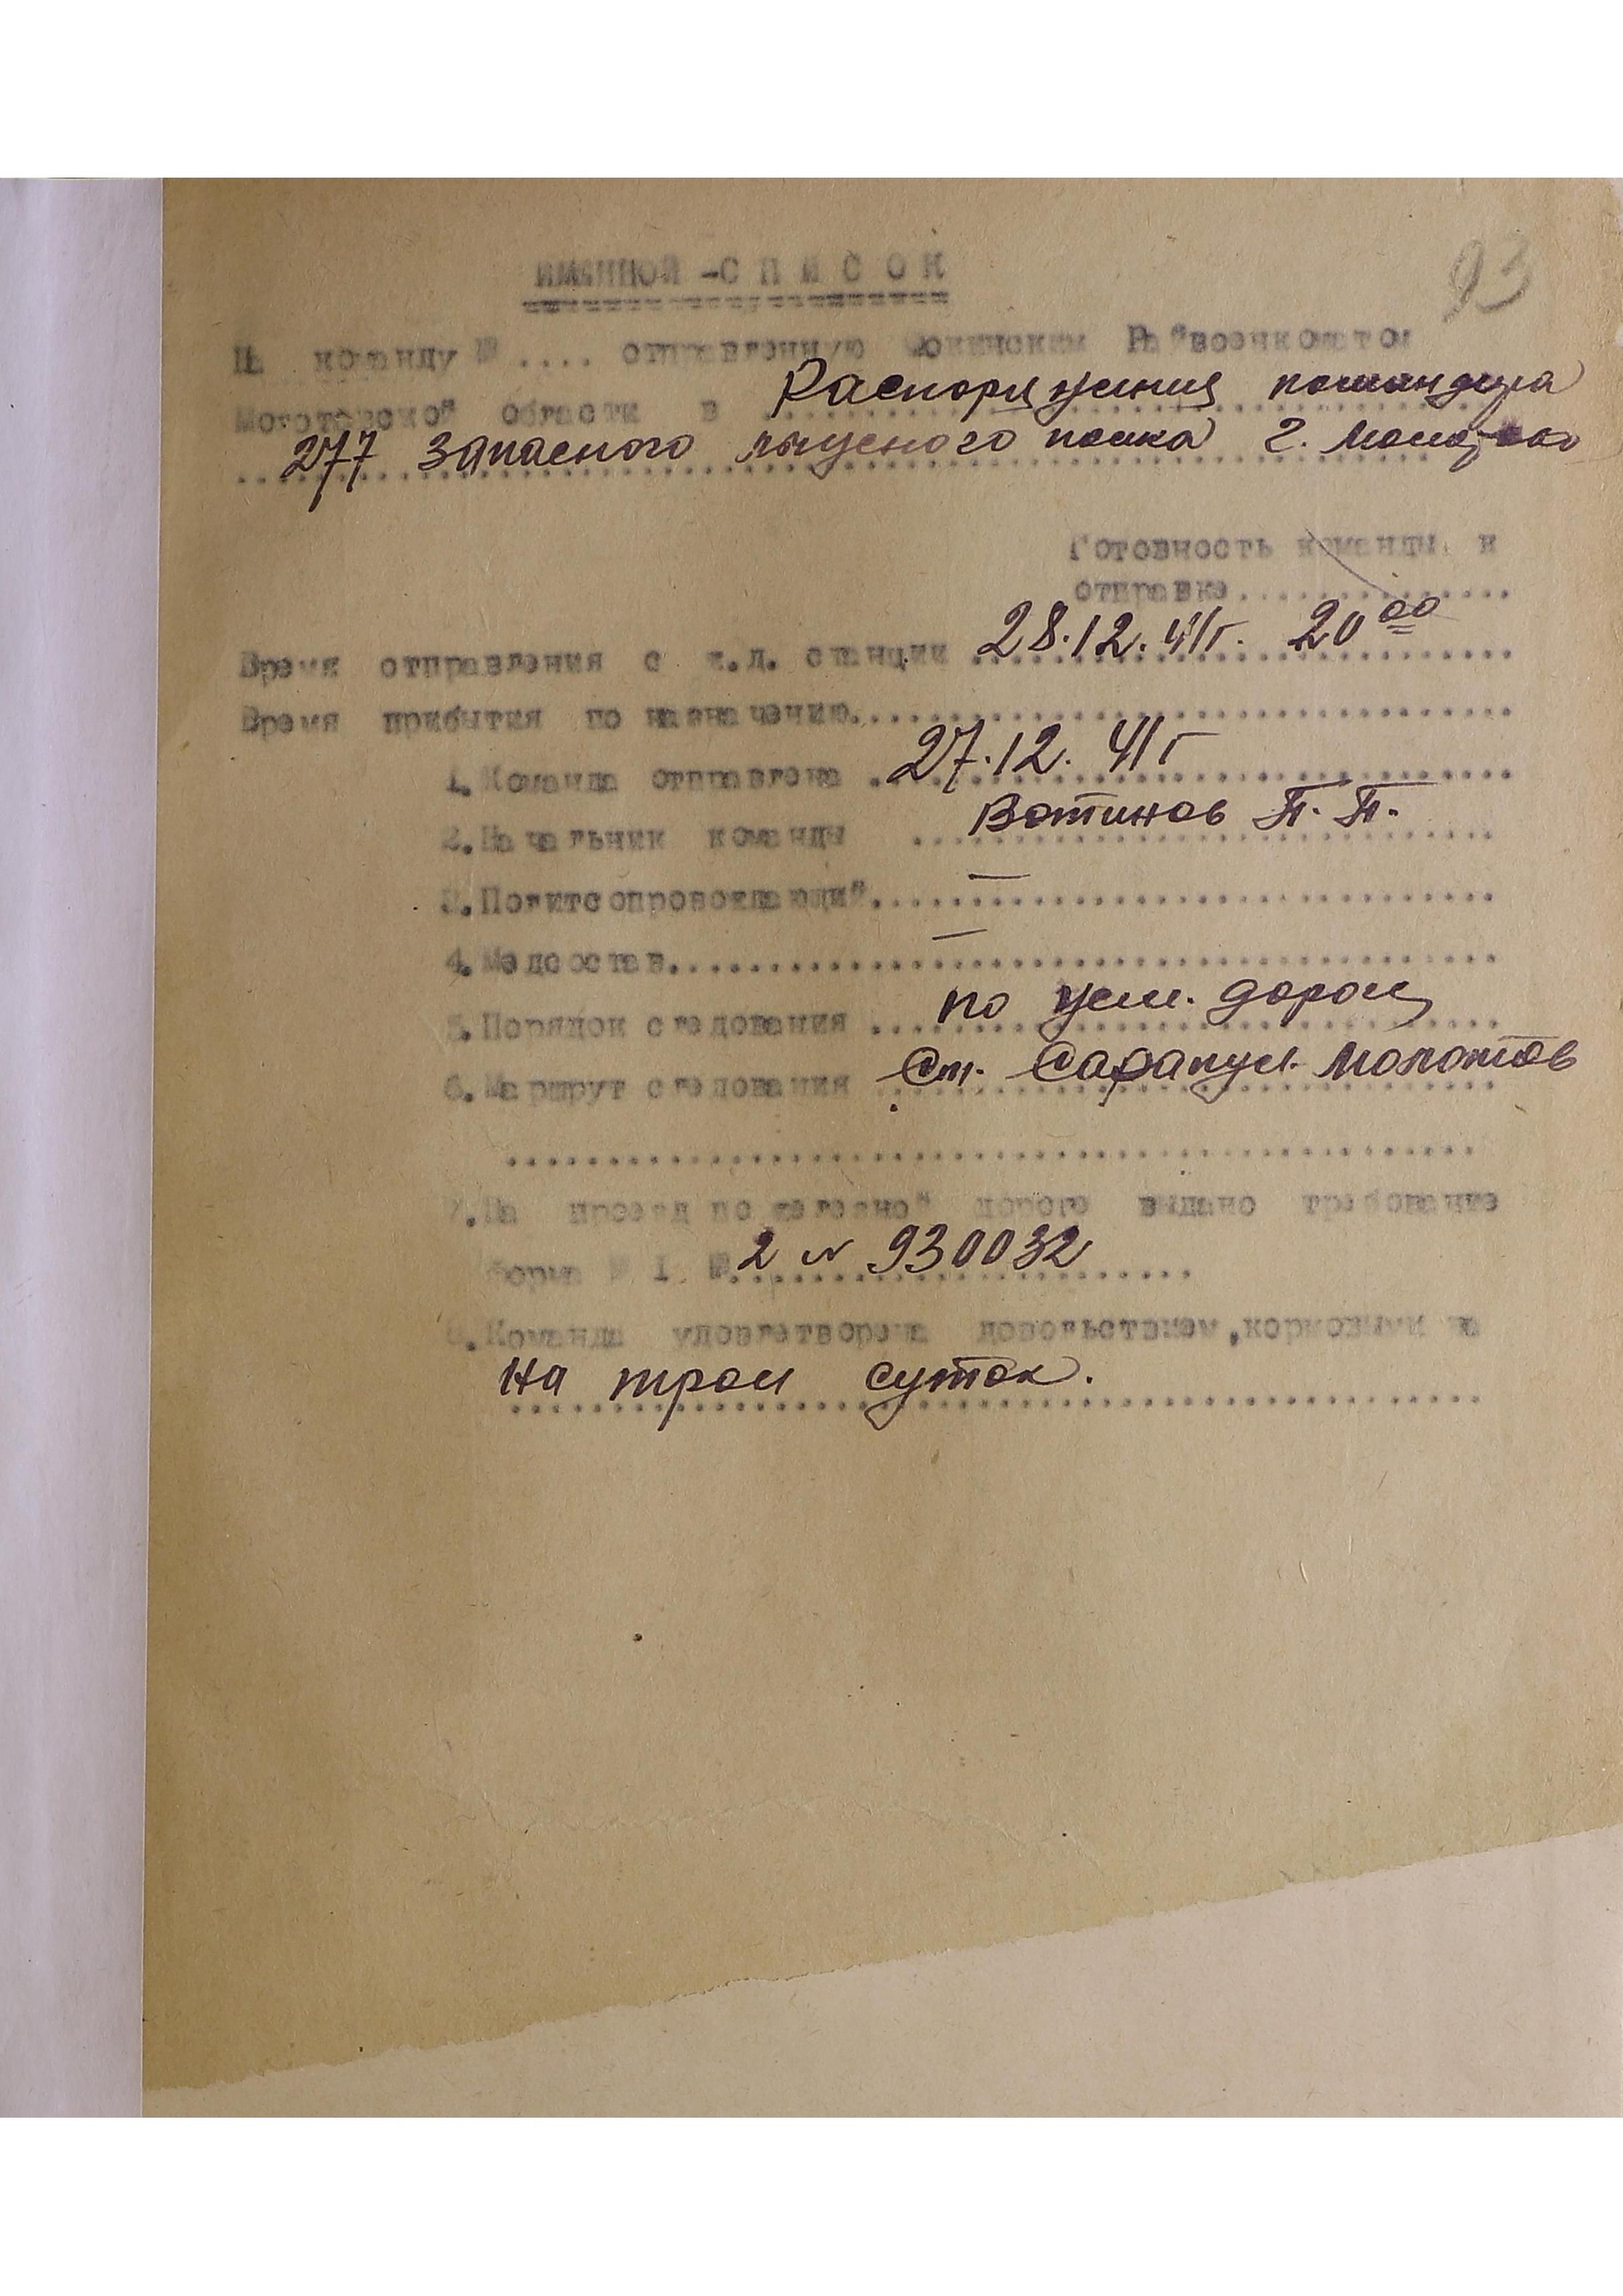 93
ИМЕННОЙ -С П И С О К
На команду № .... отправленную Фокинским Райвоенкоматом
Молотовской области в Распоряжения командира
277 запасного лыжного полка г. Молотово
Готовность команды к
отправке..............
Время отправления с ж.д. станции 28.12.41г. 20 00
Время прибытия по назначению..............
1. Команда отправлена 27.12.41г
2. Начальник команды Вотинов П.П.
3. Политсопровождающий. —
4. Медсостав. —
5. Порядок следования по жел. дорог
6. Маршрут следования Ст. Сарапул. Молотов
..............
7. На проезд по железной дороге выдано требование
форма № 1 № 2 N 930032
8. Команда удовлетворена довольствием, кормовыми на
на трои суток.